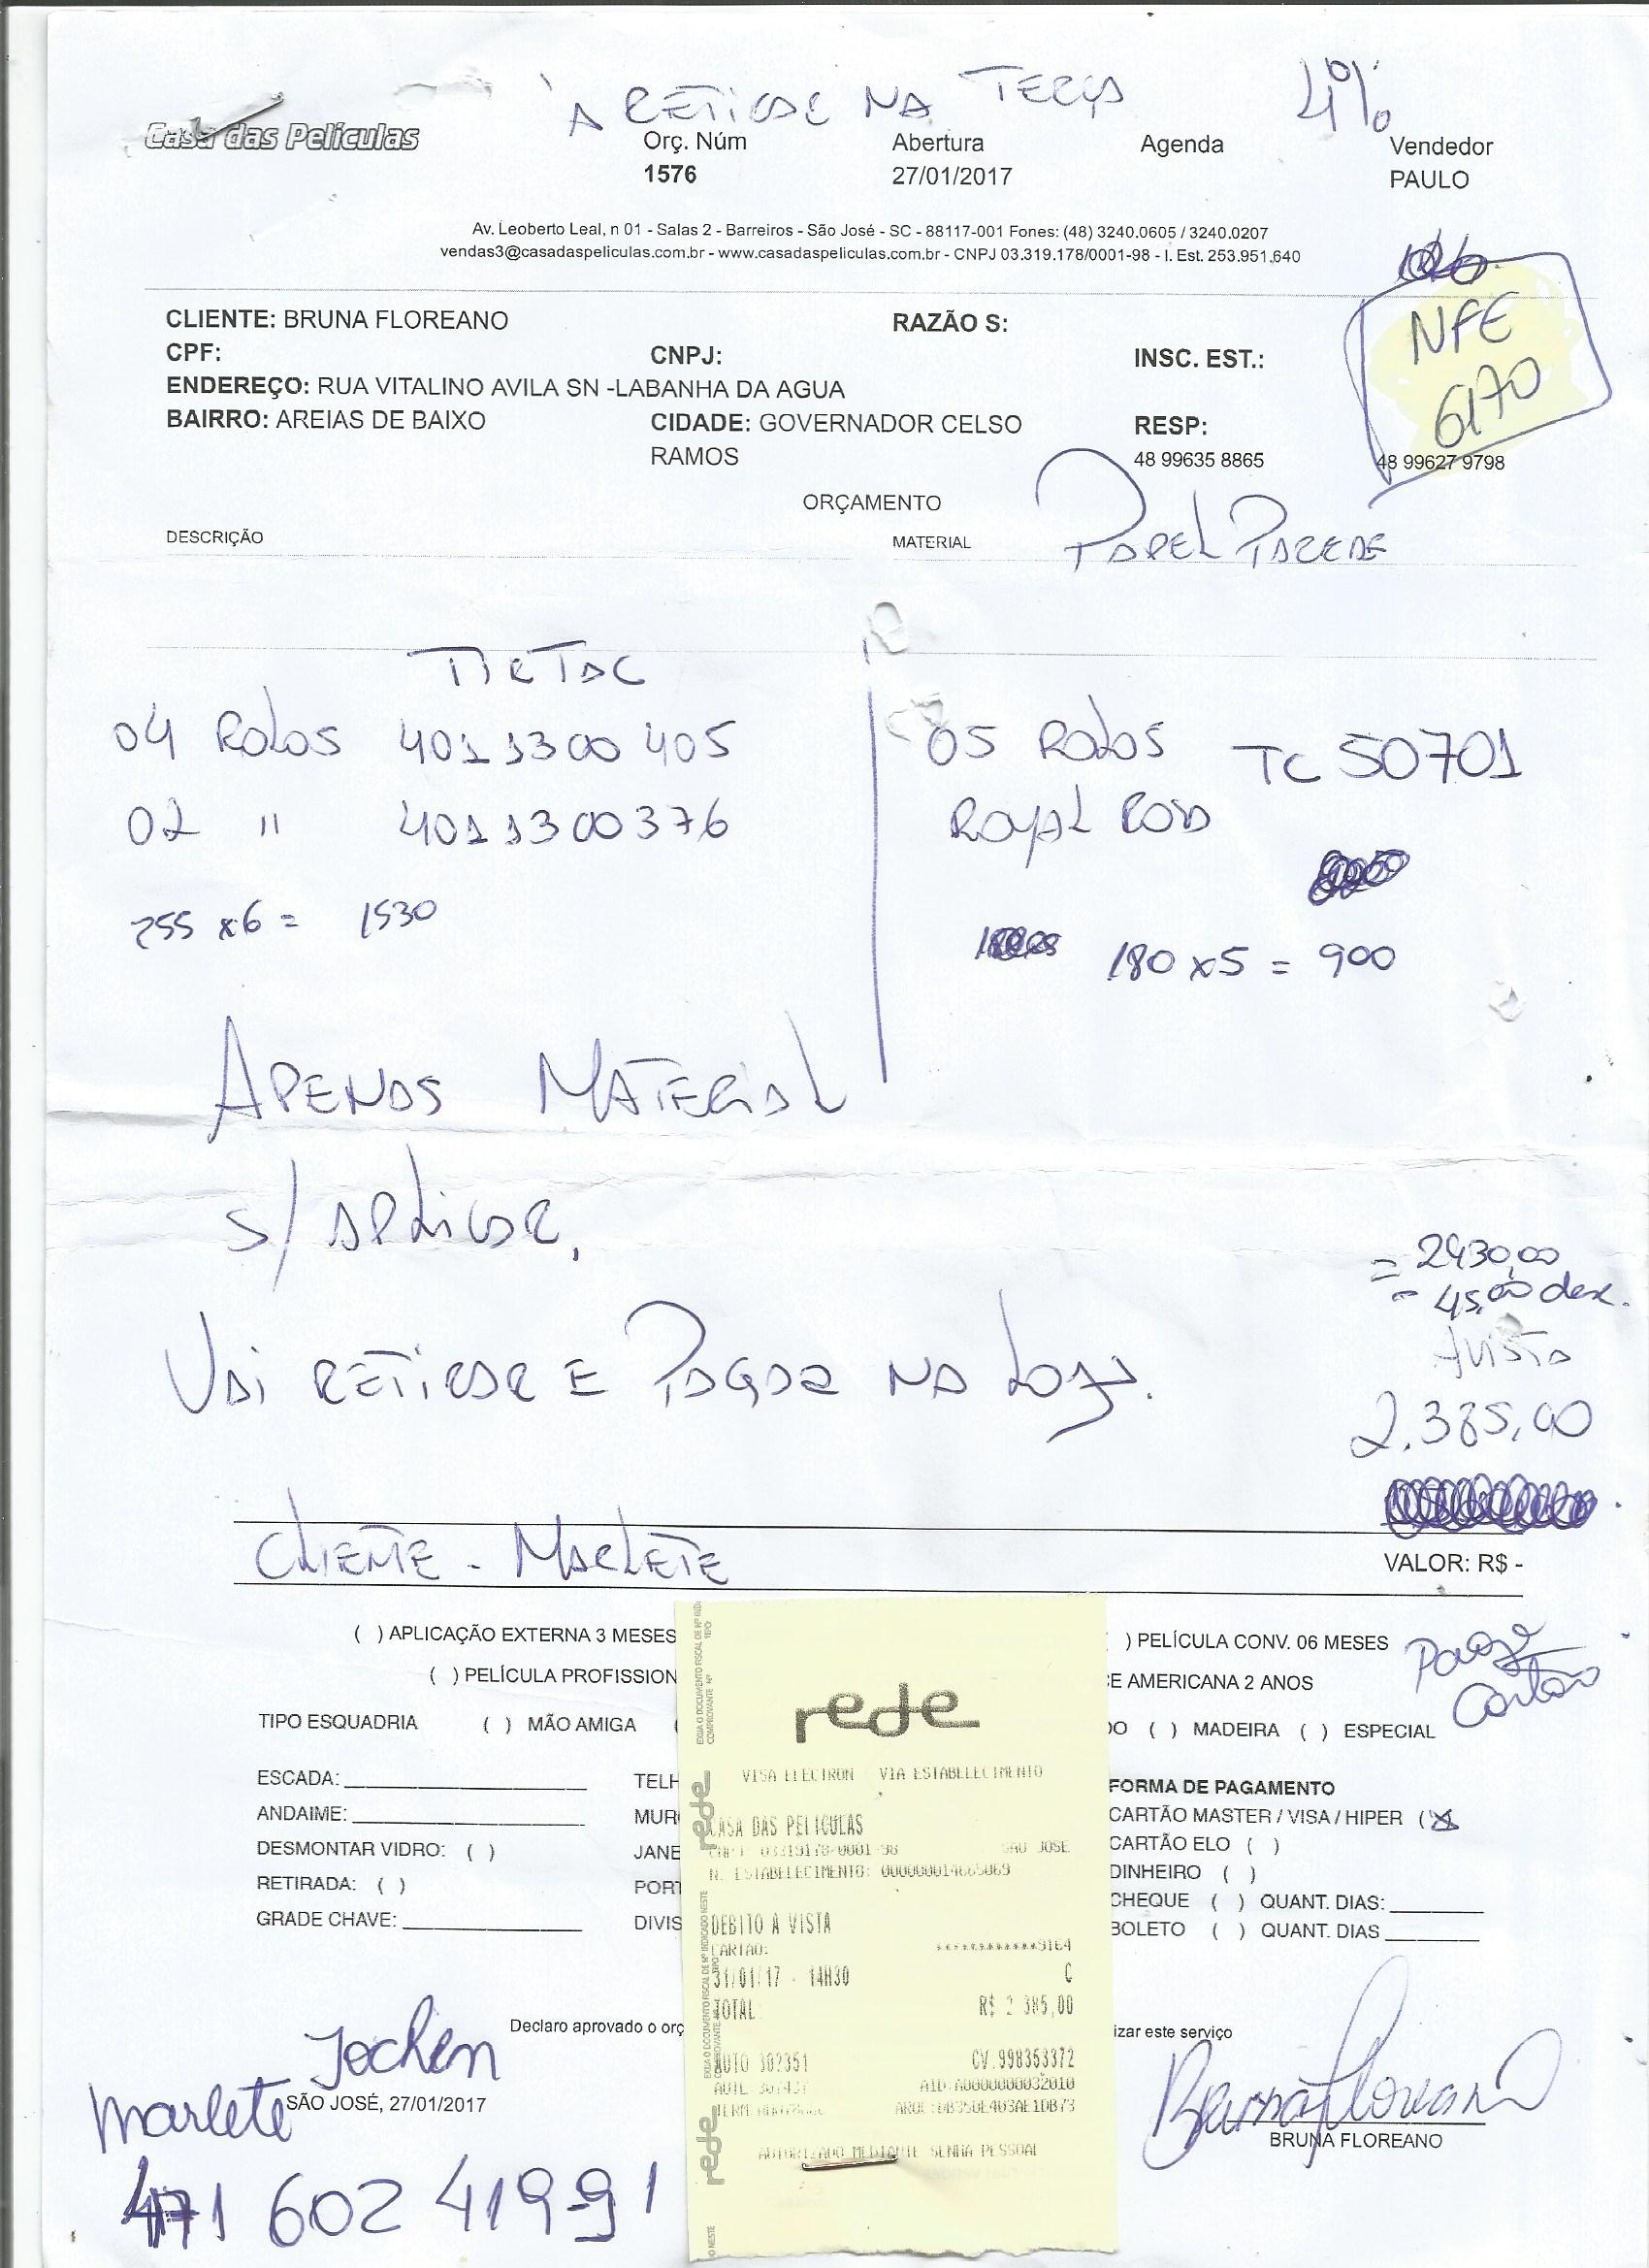 À RETIRAR NA TERÇA 4%
Casa das Películas
Orç. Núm Abertura Agenda Vendedor
1576 27/01/2017 PAULO
Av. Leoberto Leal, n 01 - Salas 2 - Barreiros - São José - SC - 88117-001 Fones: (48) 3240.0605 / 3240.0207
vendas3@casadaspeliculas.com.br - www.casadaspeliculas.com.br - CNPJ 03.319.178/0001-98 - I. Est. 253.951.640
NFE
6170
CLIENTE: BRUNA FLOREANO RAZÃO S:
CPF: CNPJ: INSC. EST.:
ENDEREÇO: RUA VITALINO AVILA SN -LABANHA DA AGUA
BAIRRO: AREIAS DE BAIXO CIDADE: GOVERNADOR CELSO RESP:
RAMOS 48 99635 8865 48 99627 9798
ORÇAMENTO
DESCRIÇÃO MATERIAL PAPEL PAREDE
TIKTAC
04 ROLOS 4011300405
02 " 4011300376
255 x 6 = 1530
05 ROLOS TC 50701
ROYAL ROSA
180 x 5 = 900
APENAS MATERIAL
S/ APLICAR,
= 2430,00
- 45,00 desc.
VAI RETIRAR E PAGAR NA LOJA.
AVISTA
2.385,00
CLIENTE - MARLETE
VALOR: R$ -
( ) APLICAÇÃO EXTERNA 3 MESES ) PELÍCULA CONV. 06 MESES
( ) PELÍCULA PROFISSION E AMERICANA 2 ANOS
Pago
Cartão
TIPO ESQUADRIA ( ) MÃO AMIGA ( DO ( ) MADEIRA ( ) ESPECIAL
ESCADA: TELH
ANDAIME: MUR
DESMONTAR VIDRO: ( ) JANE
RETIRADA: ( ) PORT
GRADE CHAVE: DIVIS
FORMA DE PAGAMENTO
CARTÃO MASTER / VISA / HIPER (X
CARTÃO ELO ( )
DINHEIRO ( )
CHEQUE ( ) QUANT. DIAS:
BOLETO ( ) QUANT. DIAS
rede
VISA ELECTRON VIA ESTABELECIMENTO
CASA DAS PELICULAS
CNPJ 03319178/0001-98 SAO JOSE
N. ESTABELECIMENTO: 000000014665069
DEBITO A VISTA
CARTAO: ************9164
31/01/17 - 14H30 C
TOTAL: R$ 2 385,00
AUTO 302351 CV.998353372
AID:A0000000032010
AUTORIZADO MEDIANTE SENHA PESSOAL
Declaro aprovado o orç izar este serviço
Jochen
Marlete
SÃO JOSÉ, 27/01/2017
Bruna Floreano
BRUNA FLOREANO
471 602 419-91